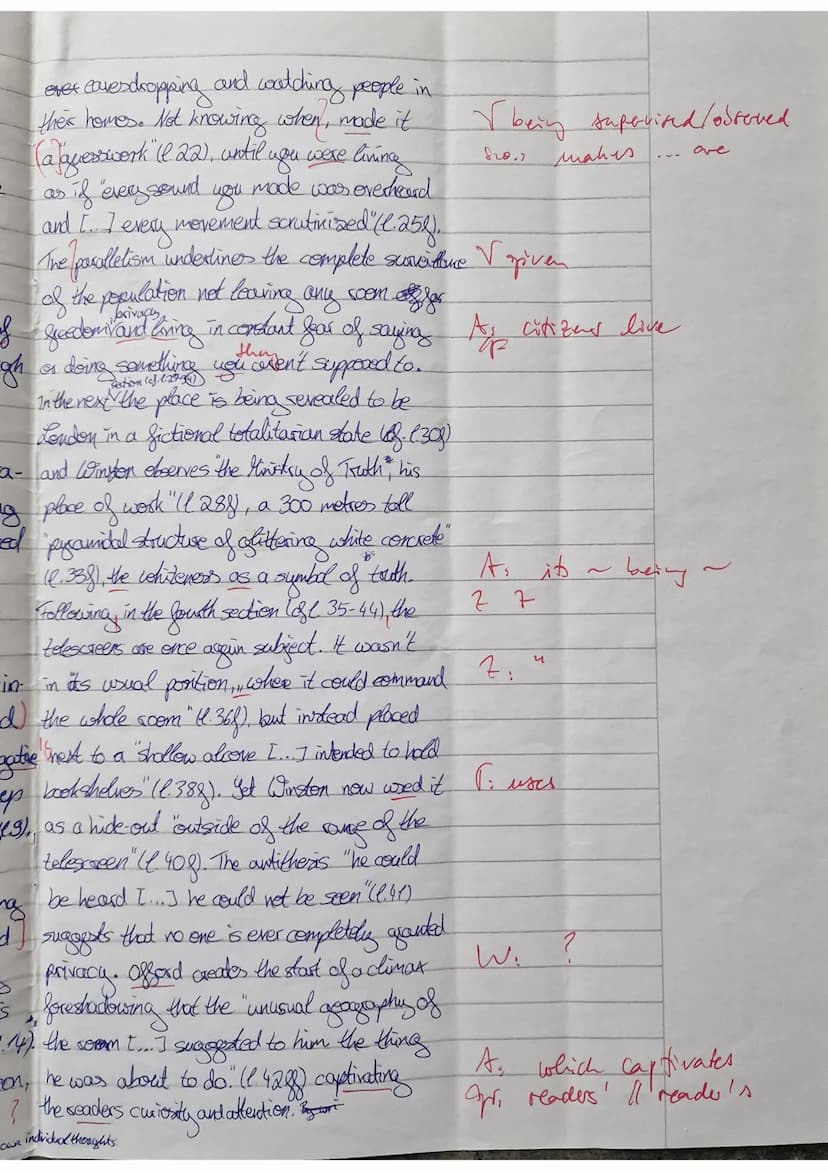 eavesdropping and watching people in
their homes. Not knowing when, made it √ being supervised/observed
[a]"guesswork" (l.22), until you were living makes ... are
as if "every sound you made was overheard
and [...] every movement scrutinized" (l.25f).
The parallelism underlines the complete surveillance √ given
of the population not leaving any room for
privacy
freedom and living in constant fear of saying A, citizens live
gh or doing something you weren't supposed to. gr
they
section (cf. l.27-34)
In the next the place is being revealed to be
London in a fictional totalitarian state (cf. l.30f)
a- and Winston observes "the Ministry of Truth", his
place of work" (l.28f), a 300 metres tall
ed "pyramidal structure of glittering white concrete"
(l.33f), the whiteness as a symbol of truth. A, its ~ being ~
Following, in the fourth section (cf. l. 35-44), the Z Z
telescreens are once again subject. It wasn't
in- in its usual position, „where it could command Z: "
d) the whole room" (l.36f), but instead placed
gative next to a "shallow alcove [...] intended to hold
ep bookshelves" (l.38f). Yet Winston now used it T: uses
as a hide-out "outside of the range of the
telescreen" (l.40f). The antithesis "he could
be heard [...] he could not be seen" (l.41)
d] suggests that no one is ever completely granted
privacy. Offord creates the start of a climax W: ?
foreshadowing that the "unusual geography of
the room [...] suggested to him the thing
on, he was about to do." (l.42ff) captivating A, which captivates
? the readers curiosity and attention. readers' // reader's
own individual thoughts.